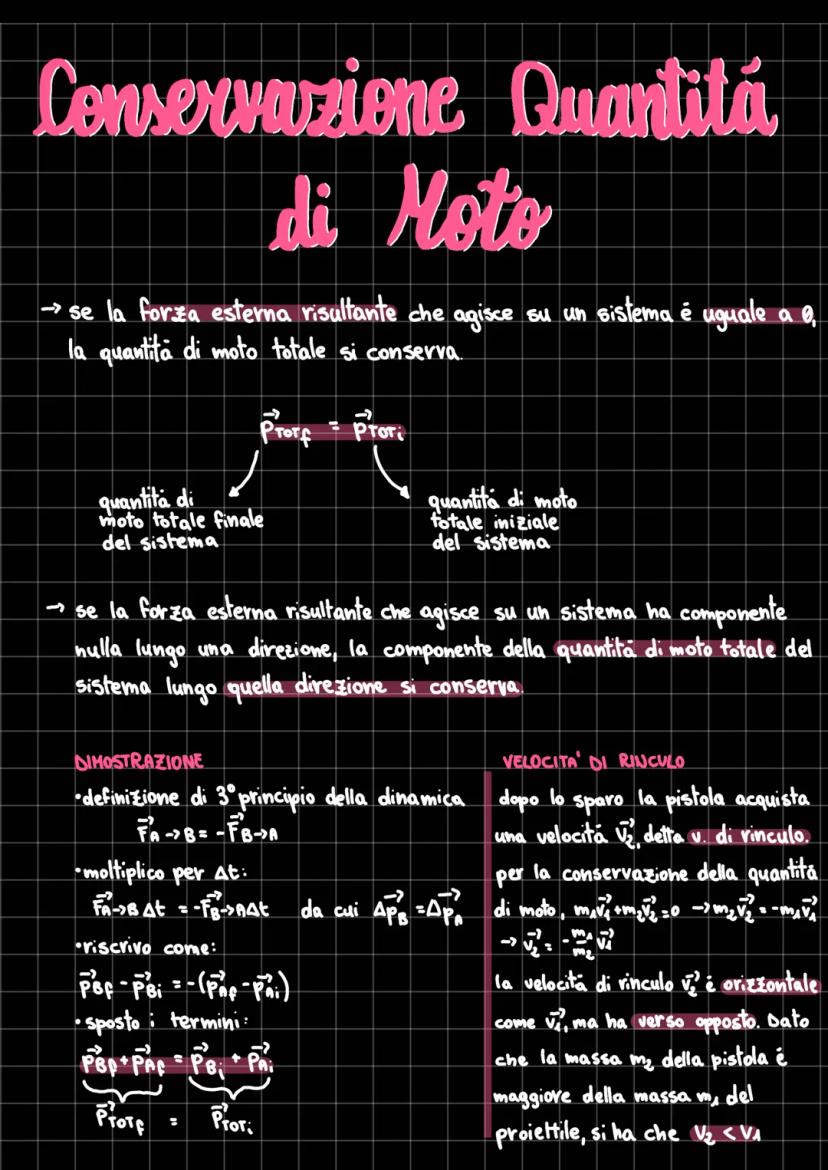 Conservazione Quantitá
di Moto
→ se la forza esterna risultante che agisce su un sistema é uguale a 0,
la quantitá di moto totale si conserva.
p⃗TOTf = p⃗TOTi
quantitá di
moto totale finale
del sistema
quantitá di moto
totale iniziale
del sistema
→ se la forza esterna risultante che agisce su un sistema ha componente
nulla lungo una direzione, la componente della quantitá di moto totale del
sistema lungo quella direzione si conserva.
DIMOSTRAZIONE
•definizione di 3° principio della dinamica
F⃗A->B = -F⃗B->A
•moltiplico per Δt:
F⃗A->B Δt = -F⃗B->A Δt da cui Δp⃗B = Δp⃗A
•riscrivo come:
p⃗Bf - p⃗Bi = -(p⃗Af - p⃗Ai)
•sposto i termini:
p⃗Bf + p⃗Af = p⃗Bi + p⃗Ai
p⃗TOTf = p⃗TOTi
VELOCITA' DI RINCULO
dopo lo sparo la pistola acquista
una velocitá v⃗2, detta v. di rinculo.
per la conservazione della quantitá
di moto, m1v⃗1+m2v⃗2=0 → m2v⃗2 = -m1v⃗1
→ v⃗2 = - m1/m2 v⃗1
la velocitá di rinculo v⃗2 é orizzontale
come v⃗1, ma ha verso opposto. Dato
che la massa m2 della pistola é
maggiore della massa m1 del
proiettile, si ha che v2 < v1